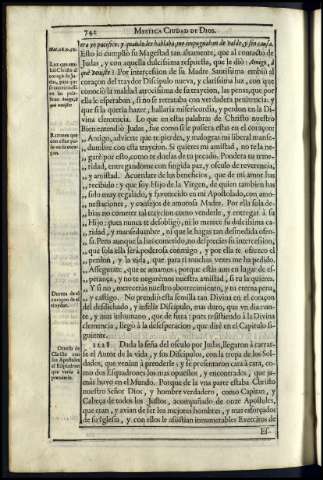 742 MYSTICA CIUDAD DE DIOS.
era yo pacifico: y quando les hablava, me impugnaban de valde, y sin causa.
Esto lo cumplió su Magestad tan altamente, que al contacto de
Judas, y con aquella dulcissima respuesta, que le dió: Amigo, á
qué veniste? Por intercession de su Madre Santissima embió al
coraçon del traydor Discipulo nueva, y clarissima luz, con que
conoció la maldad atrocissima de su traycion, las penas, que por
ella le esperaban, si no se retrataba con verdadera penitencia; y
que si la queria hazer, hallaria misericordia, y perdon en la Di-
vina clemencia. Lo que en estas palabras de Christo nuestro
Bien entendió Judas, fue como si le pusiera estas en el coraçon:
Amigo, advierte que te pierdes, y malogras mi liberal mansе-
dumbre con esta traycion. Si quieres mi amistad, no te la ne-
garé por esto, como te duelas de tu pecado. Pondera tu teme-
ridad, entregandome con fingida paz, y osculo de reverencia,
y amistad. Acuerdate de los beneficios, que de mi amor has
recibido: y que soy Hijo de la Virgen, de quien tambien has
sido muy regalado, y favorecido en mi Apostolado, con amo-
nestaciones, y consejos de amorosa Madre. Por ella sola de-
bias no cometer tal traycion como venderle, y entregar á su
Hijo: pues nunca te desobligó, ni lo merece su dulcissima ca-
ridad, y mansedumbre, ni que le hagas tan desmedida ofen-
sa. Pero aunque la has cometido, no desprecies su intercession,
que sola ella será poderosa conmigo, y por ella te ofrezco el
perdon, y la vida, que para ti muchas vezes me ha pedido.
Assegurate, que te amamos; porque estás aun en lugar de es-
perança, y no te negarémos nuestra amistad, si tu la quieres.
Y si no, merecerás nuestro aborrecimiento, y tu eterna pena,
y castigo. No prendió esta semilla tan Divina en el coraçon
del desdichado, y infeliz Discipulo, mas duro, que un diaman-
te, y mas inhumano, que de fiera; pues resistiendo á la Divina
clemencia, llegó á la desesperacion, que diré en el Capitulo si-
guiente.
1228. Dada la señal del osculo por Judas, llegaron á carear-
se el Autor de la vida, y sus Discipulos, con la tropa de los Sol-
dados, que venian á prenderle; y se presentaron cara á cara, co-
mo dos Esquadrones los mas opuestos, y encontrados, que ja-
más huvo en el Mundo. Porque de la una parte estaba Christo
nuestro Señor Dios, y hombre verdadero, como Capitan, y
Cabeça de todos los Justos, acompañado de onze Apostoles,
que eran, y avian de ser los mejores hombres, y mas esforçados
de su Iglesia, y con ellos le assistian innumerables Exercitos de
Es-